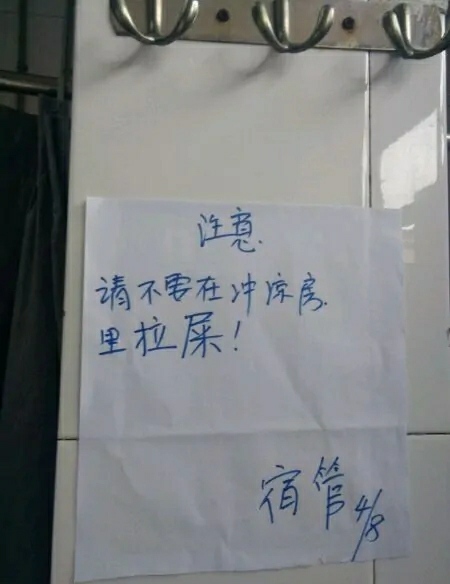 注意
请不要在冲凉房
里拉屎！
宿管 4/8